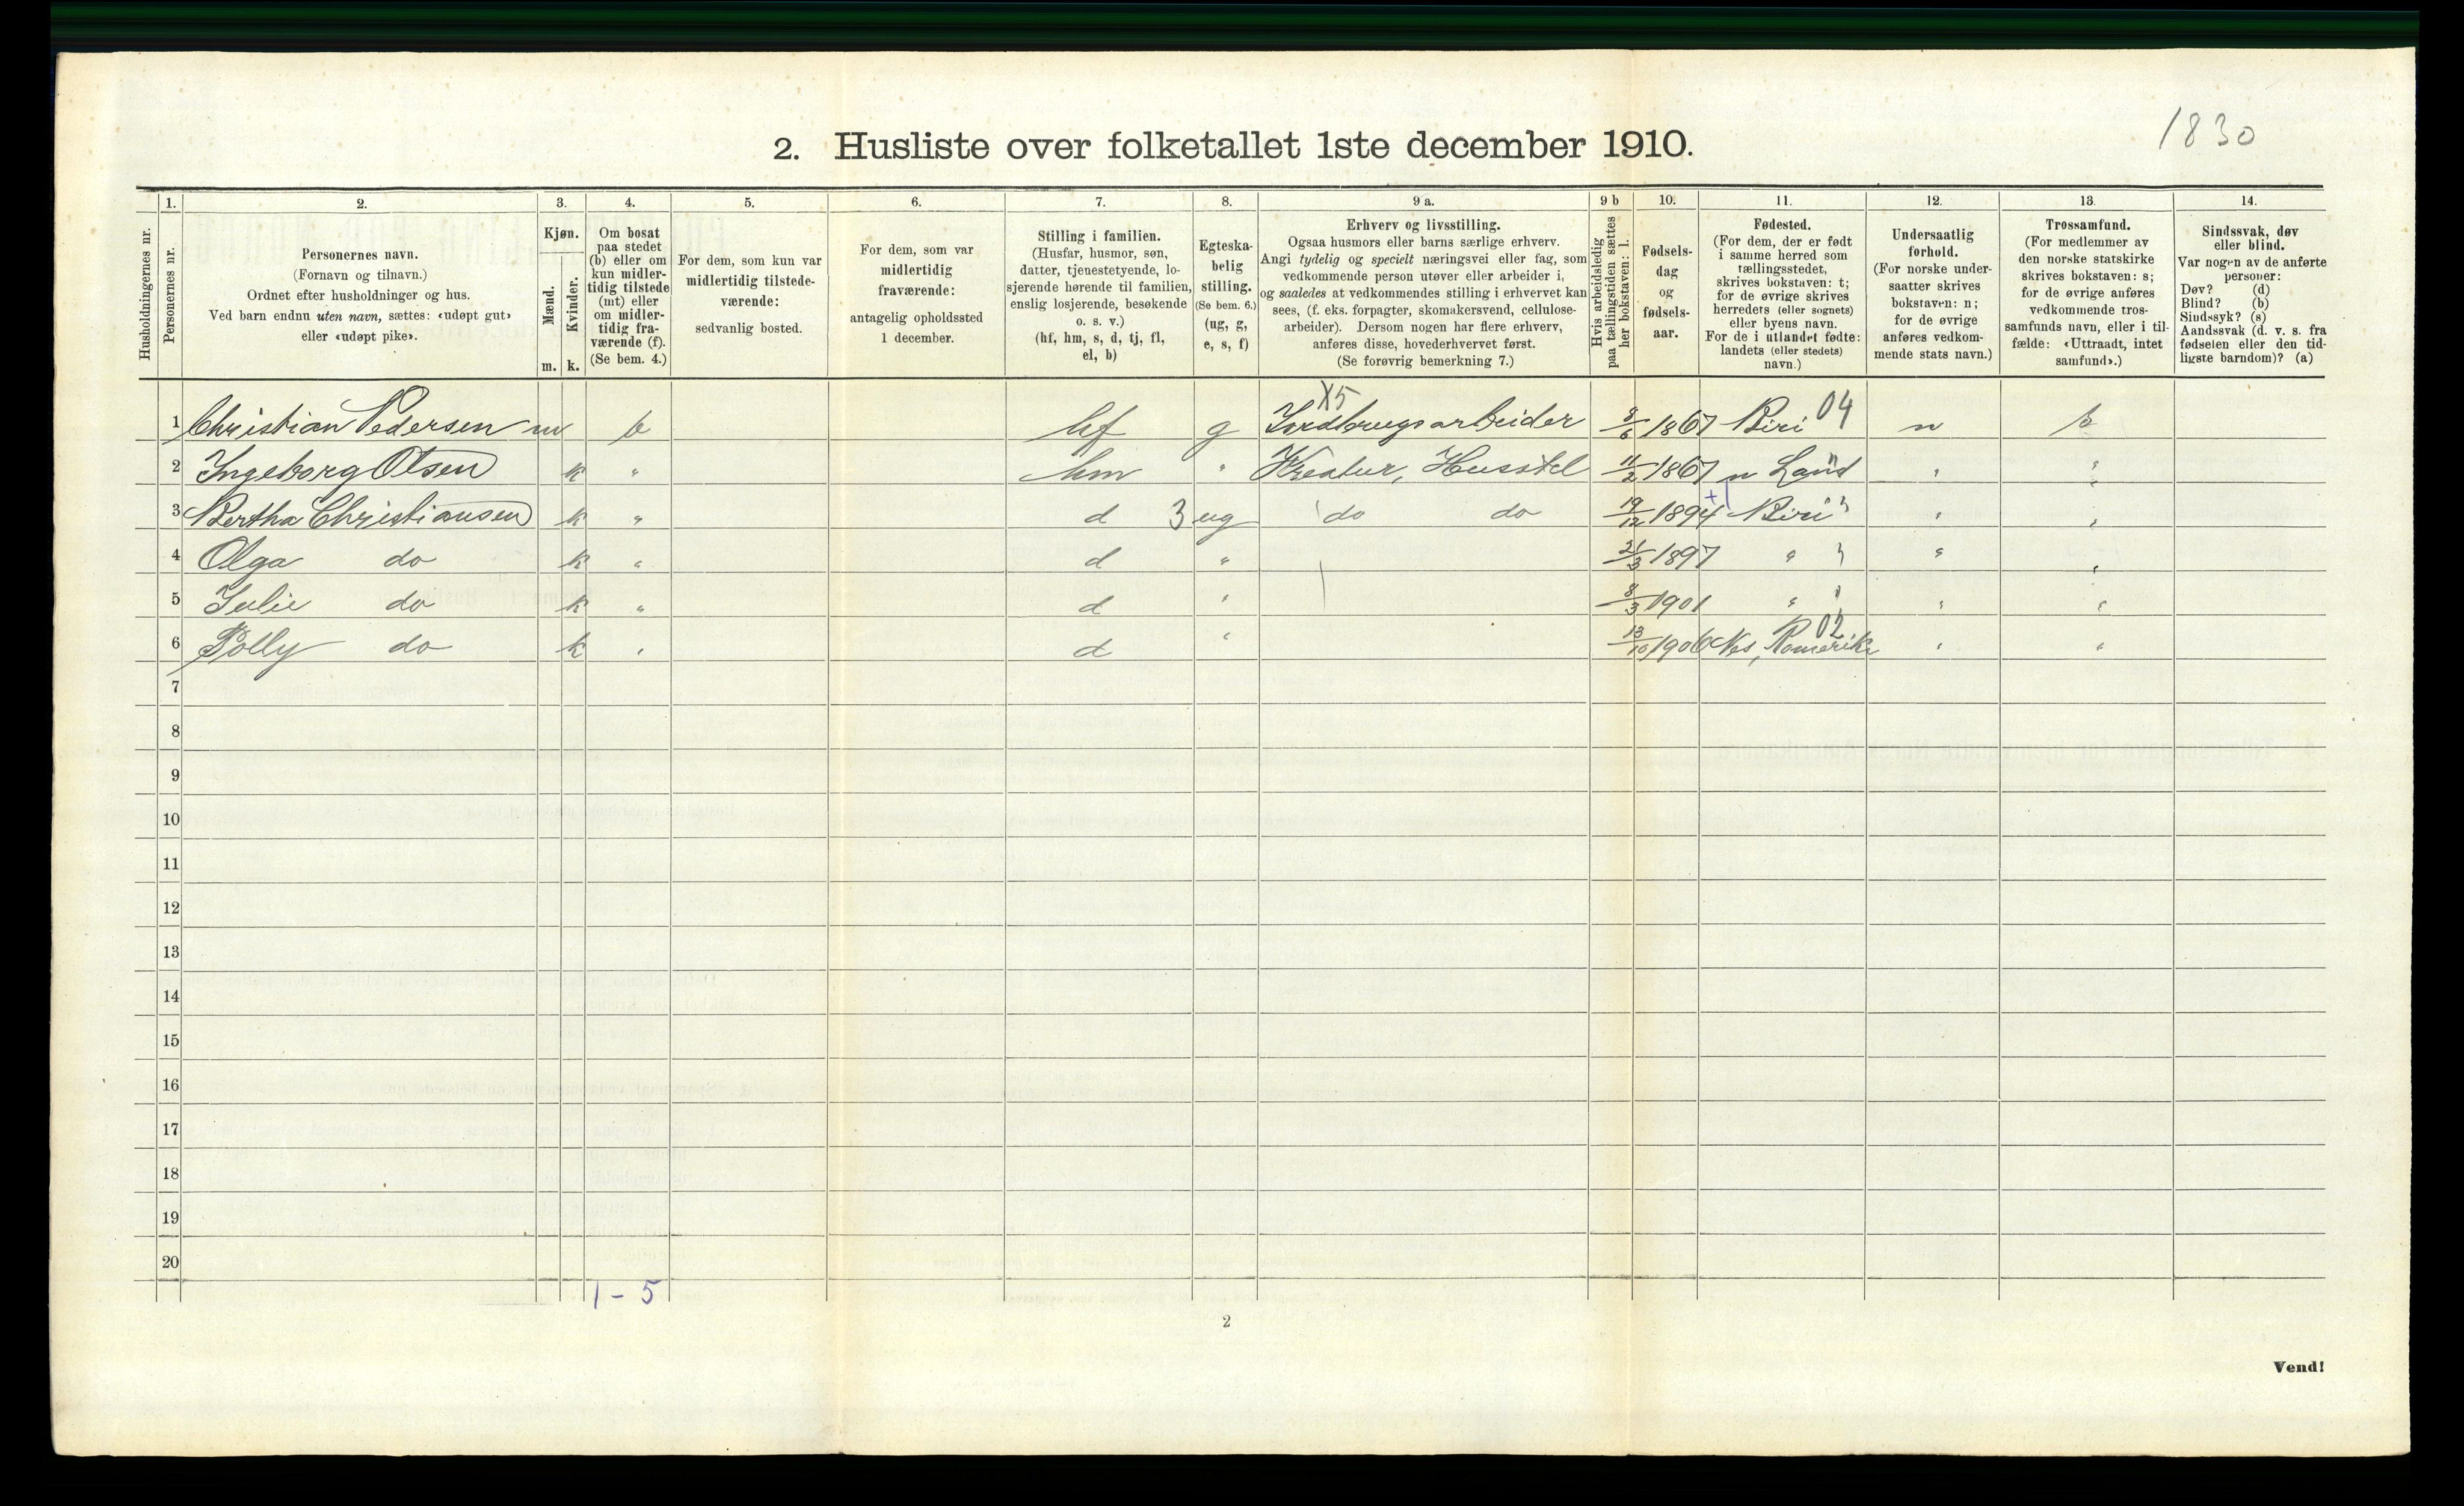 1830
2. Husliste over folketallet 1ste december 1910.
1. 2. 3. 4. 5. 6. 7. 8. 9 a. 9 b 10. 11. 12. 13. 14.
Husholdningernes nr.
Personernes nr.
Personernes navn.
(Fornavn og tilnavn.)
Ordnet efter husholdninger og hus.
Ved barn endnu uten navn, sættes: «udøpt gut»
eller «udøpt pike».
Kjøn.
Mænd.
Kvinder.
m. k.
Om bosat
paa stedet
(b) eller om
kun midler-
tidig tilstede
(mt) eller
om midler-
tidig fra-
værende (f).
(Se bem. 4.)
For dem, som kun var
midlertidig tilstede-
værende:
sedvanlig bosted.
For dem, som var
midlertidig
fraværende:
antagelig opholdssted
1 december.
Stilling i familien.
(Husfar, husmor, søn,
datter, tjenestetyende, lo-
sjerende hørende til familien,
enslig losjerende, besøkende
o. s. v.)
(hf, hm, s, d, tj, fl,
el, b)
Egteska-
belig
stilling.
(Se bem. 6.)
(ug, g,
e, s, f)
Erhverv og livsstilling.
Ogsaa husmors eller barns særlige erhverv.
Angi tydelig og specielt næringsvei eller fag, som
vedkommende person utøver eller arbeider i,
og saaledes at vedkommendes stilling i erhvervet kan
sees, (f. eks. forpagter, skomakersvend, cellulose-
arbeider). Dersom nogen har flere erhverv,
anføres disse, hovederhvervet først.
(Se forøvrig bemerkning 7.)
Hvis arbeidsledig
paa tællingstiden sættes
her bokstaven: l.
Fødsels-
dag
og
fødsels-
aar.
Fødested.
(For dem, der er født
i samme herred som
tællingsstedet,
skrives bokstaven: t;
for de øvrige skrives
herredets (eller sognets)
eller byens navn.
For de i utlandet fødte:
landets (eller stedets)
navn.)
Undersaatlig
forhold.
(For norske under-
saatter skrives
bokstaven: n;
for de øvrige
anføres vedkom-
mende stats navn.)
Trossamfund.
(For medlemmer av
den norske statskirke
skrives bokstaven: s;
for de øvrige anføres
vedkommende tros-
samfunds navn, eller i til-
fælde: «Uttraadt, intet
samfund».)
Sindssvak, døv
eller blind.
Var nogen av de anførte
personer:
Døv? (d)
Blind? (b)
Sindssyk? (s)
Aandssvak (d. v. s. fra
fødselen eller den tid-
ligste barndom)? (a)
X5
1 Christian Pedersen m b hf g Jordbrugsarbeider 8/6 1867 Biri 04 n s
2 Ingeborg Olsen k " hm " Kreatur, Husstel 11/2 1867 n Land " " "
3 Bertha Christiansen k " d 3 ug do do 19/12 1894 +1 Biri " " "
4 Olga do k " d " 21/3 1897 " " " "
5 Julie do k " d " 8/3 1901 " " " "
6 Polly do k " d " 13/10 1906 Nes, Romerike 02 " "
7
8
9
10
11
12
13
14
15
16
17
18
19
20
1 - 5
2
Vend!